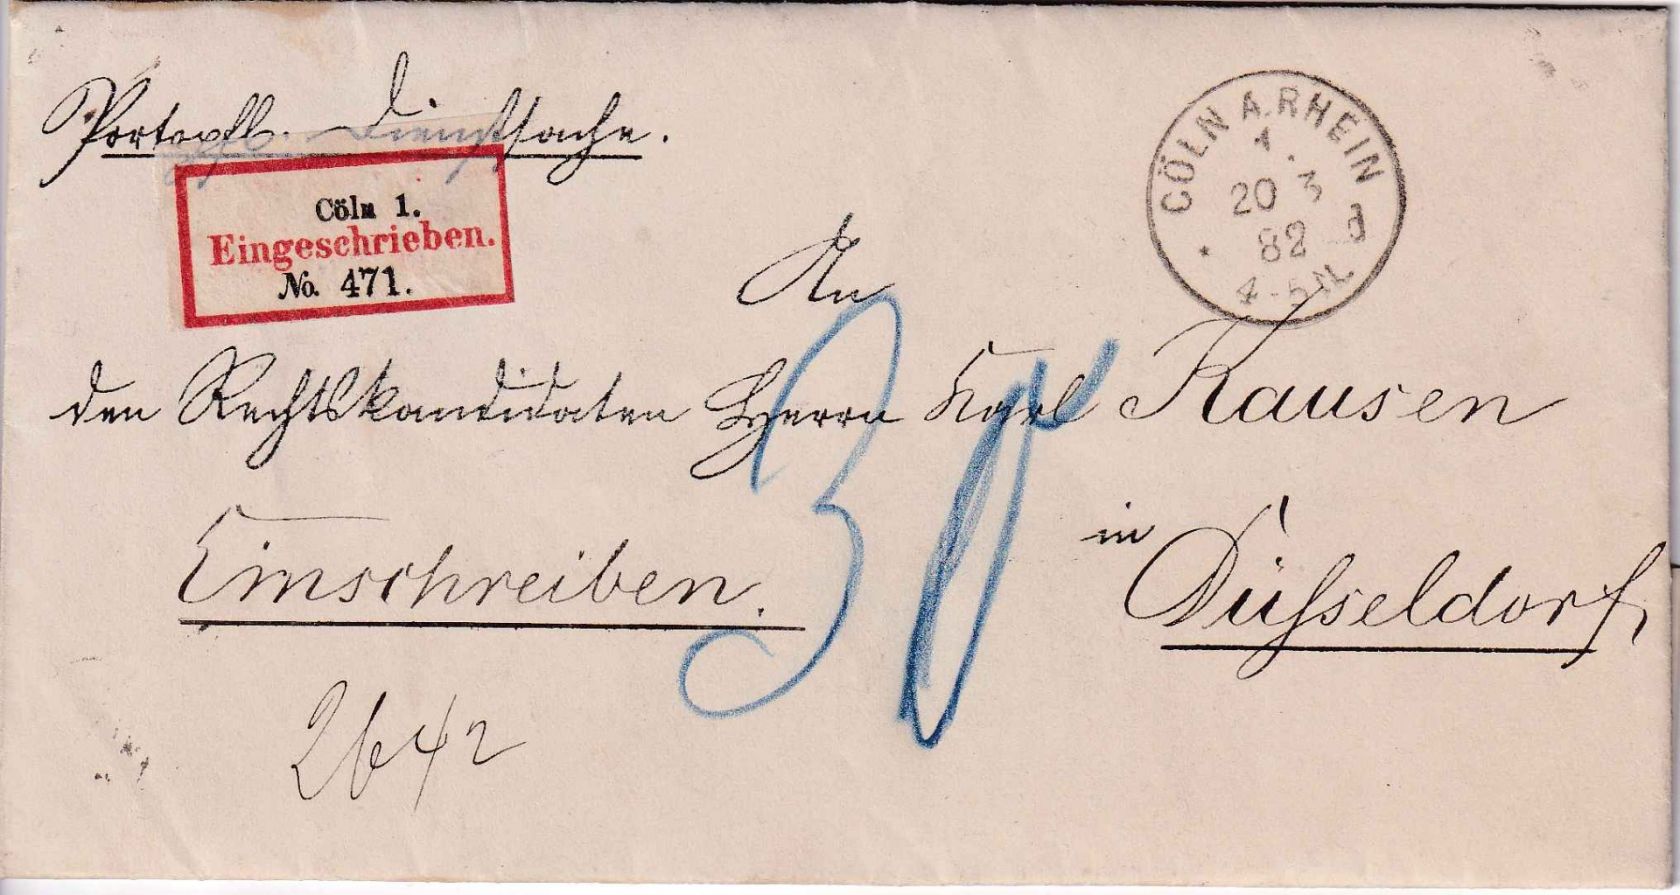 Portopfl. Dienstsache.
Cöln 1.
Eingeschrieben.
No. 471.
CÖLN A. RHEIN
1.
20 3
82 d
4-5N.
An
den Rechtskandidaten Herrn Karl Kausen
Einschreiben.
in Düsseldorf
30
2642